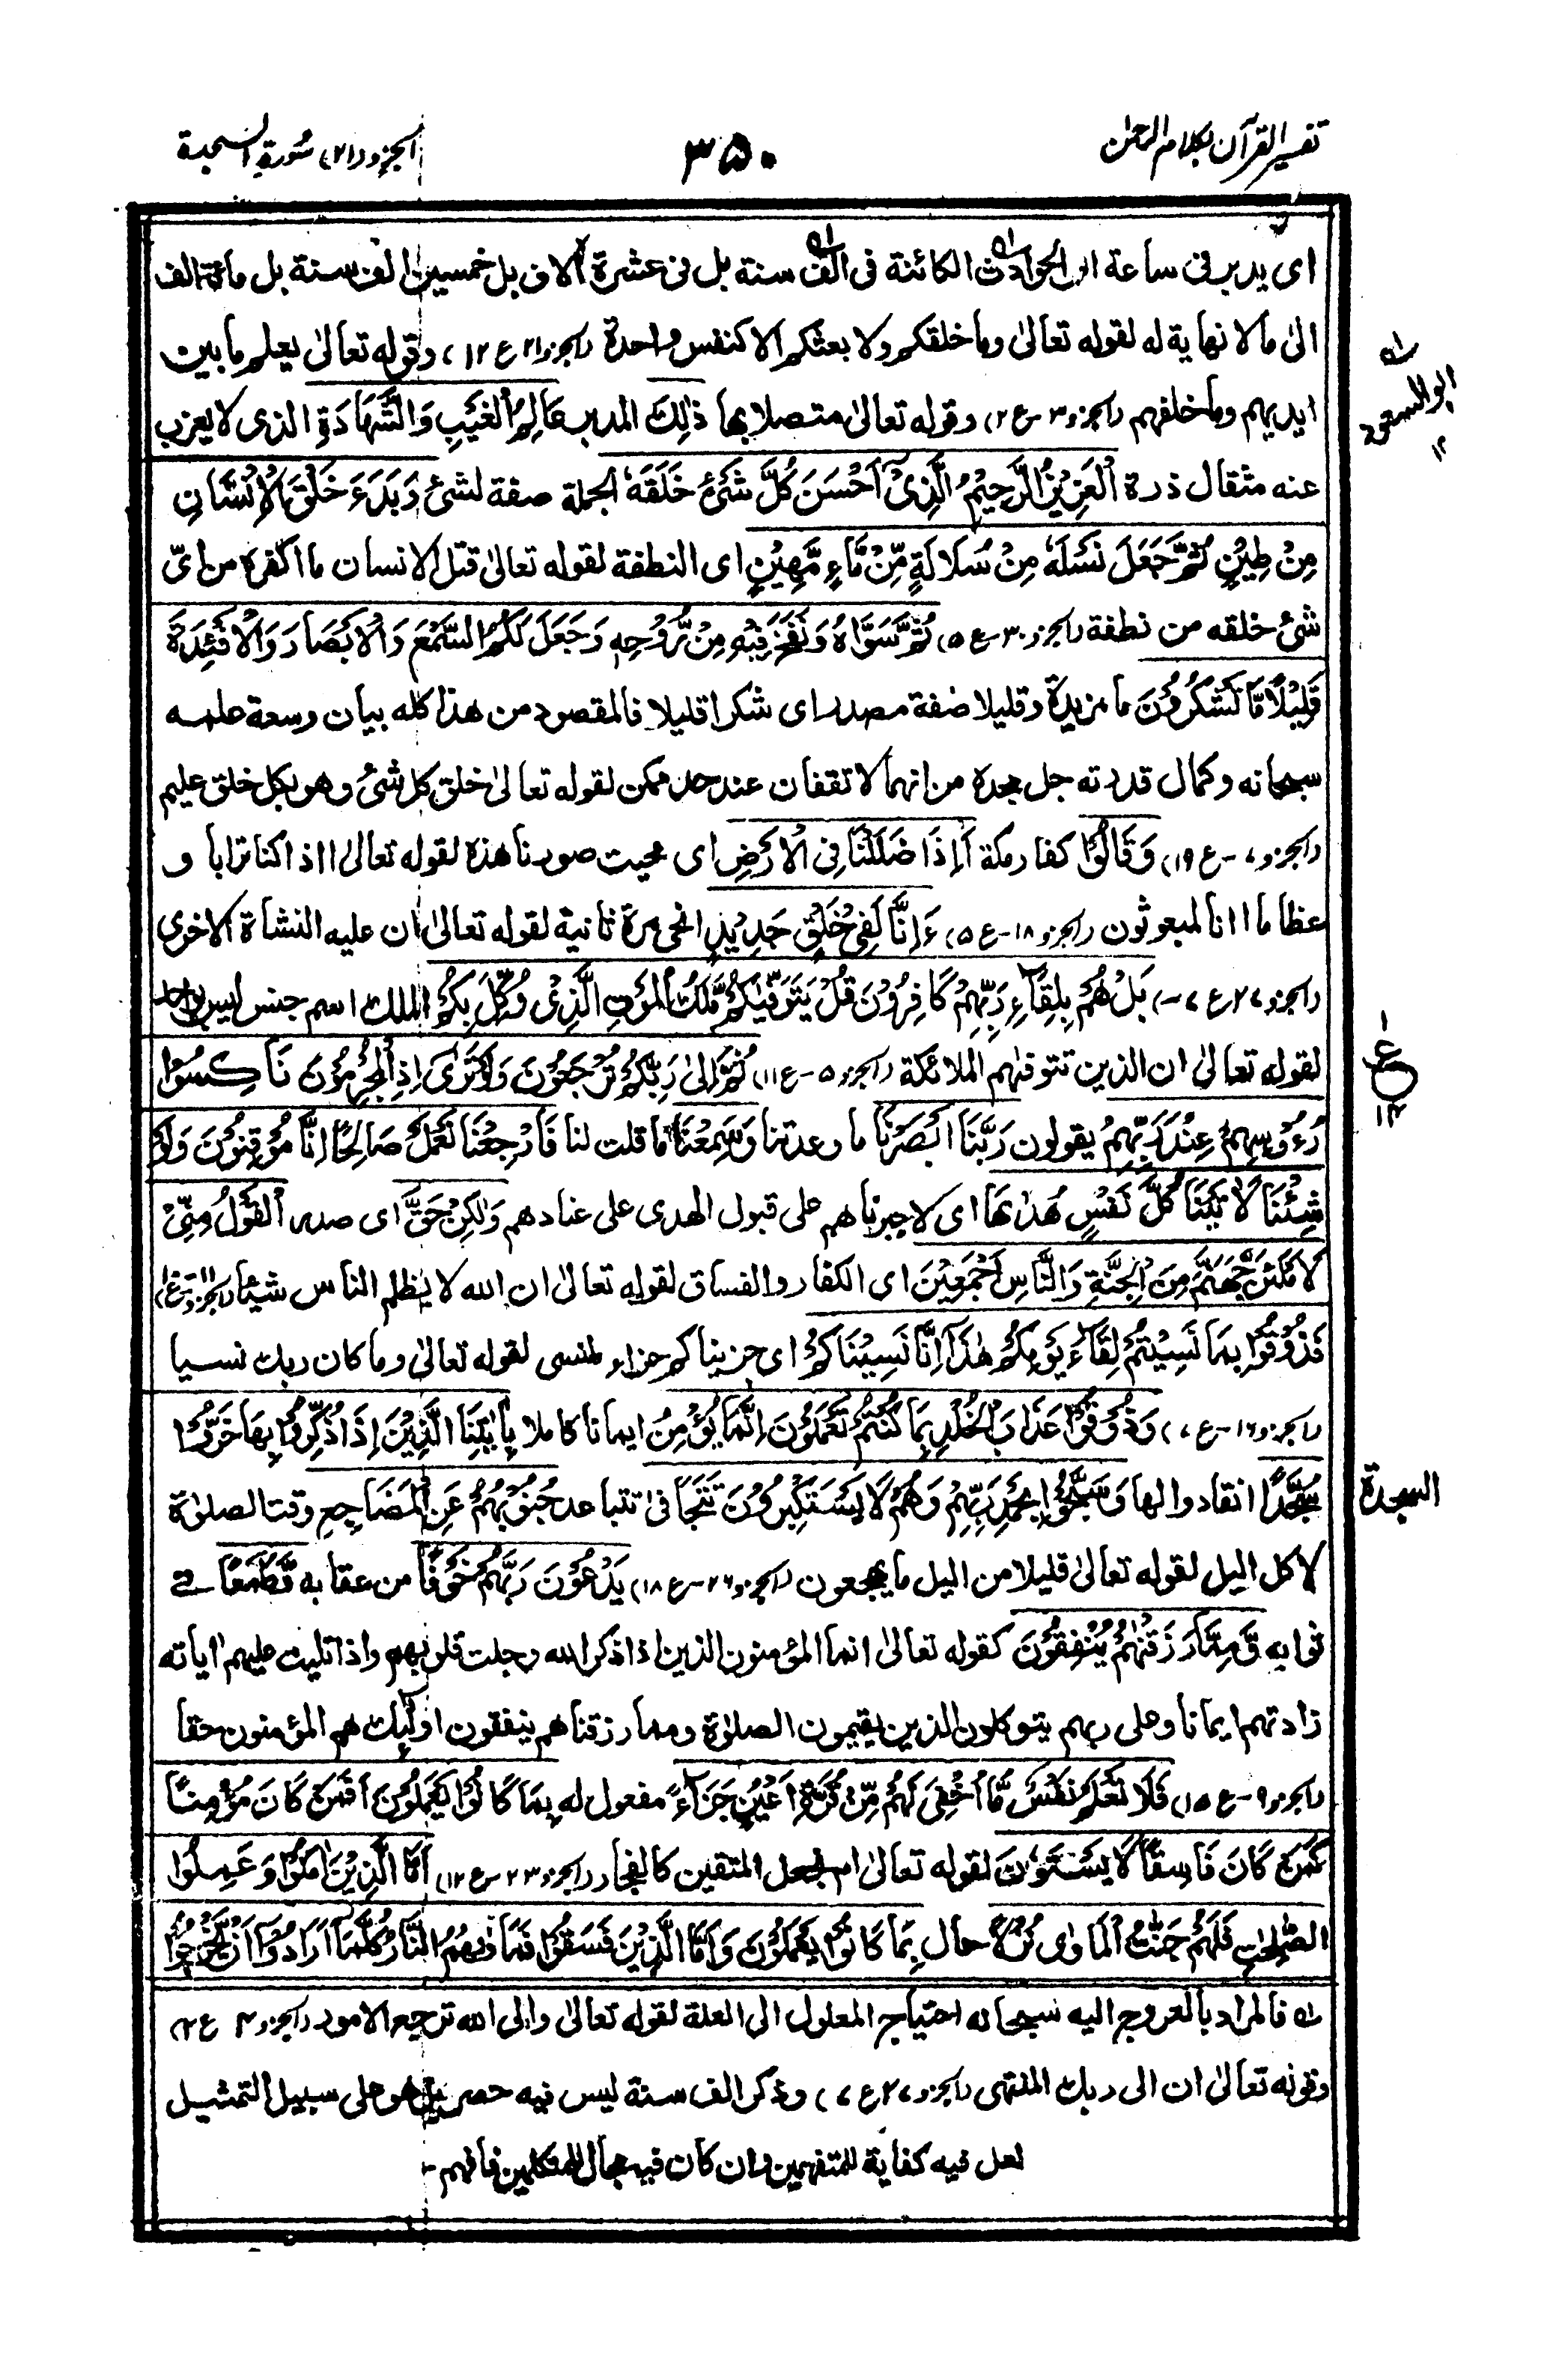 تفسير القرآن بكلام الرحمٰن
٣٥٠
الجزو (٢١) سورة السجدة
اى يدبر فى ساعة اى الحوادث الكائنة فى الف سنة بل فى عشرة آلاف بل خمسين الف سنة بل مائة الف
الىٰ مالا نهاية له لقوله تعالىٰ وما خلقكم ولا بعثكم الا كنفس واحدة (الجزو ٢١ ع ١٢) وقوله تعالىٰ يعلم ما بين
ايديهم وما خلفهم (الجزو ٣ - ع ٢) وقوله تعالىٰ متصلا بها ذٰلِكَ المدبر عَالِمُ الْغَيْبِ وَالشَّهَادَةِ الذى لا يعزب
ابو السعود ١٢
عنه مثقال ذرة الْعَزِيْزُ الرَّحِيْمُ الَّذِىْ اَحْسَنَ كُلَّ شَىْءٍ خَلَقَهٗ الجملة صفة لشىء وَبَدَءَ خَلْقَ الْاِنْسَانِ
مِنْ طِيْنٍ ثُمَّ جَعَلَ نَسْلَهٗ مِنْ سُلَالَةٍ مِّنْ مَّاءٍ مَّهِيْنٍ اى النطفة لقوله تعالىٰ قتل الانسان ما اكفره من اىّ
شىء خلقه من نطفة (الجزو ٣٠ - ع ٥) ثُمَّ سَوَّاهُ وَنَفَخَ فِيْهِ مِنْ رُّوْحِهٖ وَجَعَلَ لَكُمُ السَّمْعَ وَالْاَبْصَارَ وَالْاَفْئِدَةَ
قَلِيْلًا مَّا تَشْكُرُوْنَ ما مزيدة وقليلا صفة مصدر اى شكرا قليلا فالمقصود من هذا كله بيان وسعة علمه
سبحانه وكمال قدرته جل مجده من انهما لا تقفان عند حد ممكن لقوله تعالىٰ خلق كل شىء وهو بكل خلق عليم
(الجزو ٧ - ع ١٩) وَقَالُوْا كفار مكة ءَاِذَا ضَلَلْنَا فِى الْاَرْضِ اى محيت صورنا هذه لقوله تعالىٰ ااذا كنا ترابا و
عظاما اانا لمبعوثون (الجزو ١٨ - ع ٥) ءَاِنَّا لَفِىْ خَلْقٍ جَدِيْدٍ انحى مرة ثانية لقوله تعالىٰ ان عليه النشاة الاخرى
(الجزو ٢٧ ع ٧ -) بَلْ هُمْ بِلِقَآءِ رَبِّهِمْ كَافِرُوْنَ قُلْ يَتَوَفّٰيكُمْ مَّلَكُ الْمَوْتِ الَّذِىْ وُكِّلَ بِكُمْ الملك اسم جنس ليس بواحد
لقوله تعالىٰ ان الذين تتوفٰهم الملائكة (الجزو ٥ - ع ١١) ثُمَّ اِلىٰ رَبِّكُمْ تُرْجَعُوْنَ وَلَوْ تَرٰى اِذِ الْمُجْرِمُوْنَ نَاكِسُوْا
ع ١٤
رُءُوْسِهِمْ عِنْدَ رَبِّهِمْ يقولون رَبَّنَا اَبْصَرْنَا ما وعدتنا وَسَمِعْنَا ما قلت لنا فَارْجِعْنَا نَعْمَلْ صَالِحًا اِنَّا مُوْقِنُوْنَ وَلَوْ
شِئْنَا لَاٰتَيْنَا كُلَّ نَفْسٍ هُدٰىهَا اى لاجبرناهم على قبول الهدى على عنادهم وَلٰكِنْ حَقَّ اى صدر الْقَوْلُ مِنِّىْ
لَاَمْلَئَنَّ جَهَنَّمَ مِنَ الْجِنَّةِ وَالنَّاسِ اَجْمَعِيْنَ اى الكفار والفساق لقوله تعالىٰ ان الله لا يظلم الناس شيئا
فَذُوْقُوْا بِمَا نَسِيْتُمْ لِقَآءَ يَوْمِكُمْ هٰذَا اِنَّا نَسِيْنَاكُمْ اى جزيناكم جزاء المنسى لقوله تعالىٰ وما كان ربك نسيا
(الجزو ١٦ - ع ٧) وَذُوْقُوْا عَذَابَ الْخُلْدِ بِمَا كُنْتُمْ تَعْمَلُوْنَ اِنَّمَا يُؤْمِنُ ايمانا كاملا بِاٰيٰتِنَا الَّذِيْنَ اِذَا ذُكِّرُوْا بِهَا خَرُّوْا
سُجَّدًا انقادوا لها وَسَبَّحُوْا بِحَمْدِ رَبِّهِمْ وَهُمْ لَا يَسْتَكْبِرُوْنَ تَتَجَافىٰ تتباعد جُنُوْبُهُمْ عَنِ الْمَضَاجِعِ وقت الصلوٰة
السجدة
لا كل اليل لقوله تعالىٰ قليلا من اليل ما يهجعون (الجزو ٢٦ - ع ١٨) يَدْعُوْنَ رَبَّهُمْ خَوْفًا من عقابه وَّطَمَعًا فى
ثوابه وَّمِمَّا رَزَقْنٰهُمْ يُنْفِقُوْنَ كقوله تعالىٰ انما المؤمنون الذين اذا ذكر الله وجلت قلوبهم واذا تليت عليهم اياته
زادتهم ايمانا وعلى ربهم يتوكلون الذين يقيمون الصلوٰة ومما رزقناهم ينفقون اولٰئك هم المؤمنون حقا
(الجزو ٩ - ع ١٥) فَلَا تَعْلَمُ نَفْسٌ مَّا اُخْفِىَ لَهُمْ مِّنْ قُرَّةِ اَعْيُنٍ جَزَآءً مفعول له بِمَا كَانُوْا يَعْمَلُوْنَ اَفَمَنْ كَانَ مُؤْمِنًا
كَمَنْ كَانَ فَاسِقًا لَا يَسْتَوٗنَ لقوله تعالىٰ ام نجعل المتقين كالفجار (الجزو ٢٣ - ع ١٢) اَمَّا الَّذِيْنَ اٰمَنُوْا وَعَمِلُوا
الصّٰلِحٰتِ فَلَهُمْ جَنّٰتُ الْمَاْوٰى نُزُلًا حال بِمَا كَانُوْا يَعْمَلُوْنَ وَاَمَّا الَّذِيْنَ فَسَقُوْا فَمَاْوٰىهُمُ النَّارُ كُلَّمَا اَرَادُوْا اَنْ يَّخْرُجُوْا
له فالمراد بالعروج اليه سبحانه احتياج المعلول الى العلة لقوله تعالىٰ والى الله ترجع الامور (الجزو ٤ ع ٢)
وقوله تعالىٰ ان الى ربك المنتهى (الجزو ٢٧ ع ٧) وذكر الف سنة ليس فيه حصر بل هو على سبيل التمثيل
لعل فيه كفاية للمتفهمين وان كان فيه مجال للمتكلمين فافهم -